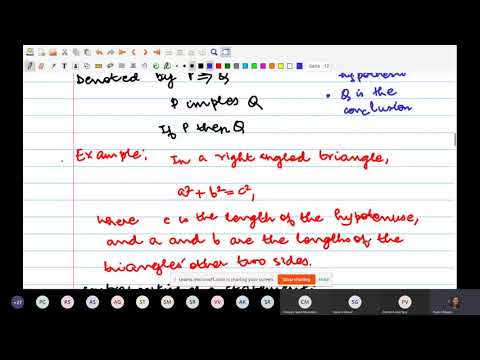 Denoted by P ⇒ Q
P implies Q
If P then Q
• Q is the
conclusion
Example: In a right angled triangle,
a² + b² = c²,
where c is the length of the hypotenuse,
and a and b are the lengths of the
triangles' other two sides.
teams.microsoft.com is sharing your screen.
Stop sharing
+27
PC
RS
AS
AG
ST
SM
SR
VV
SG
CM
SG
PV